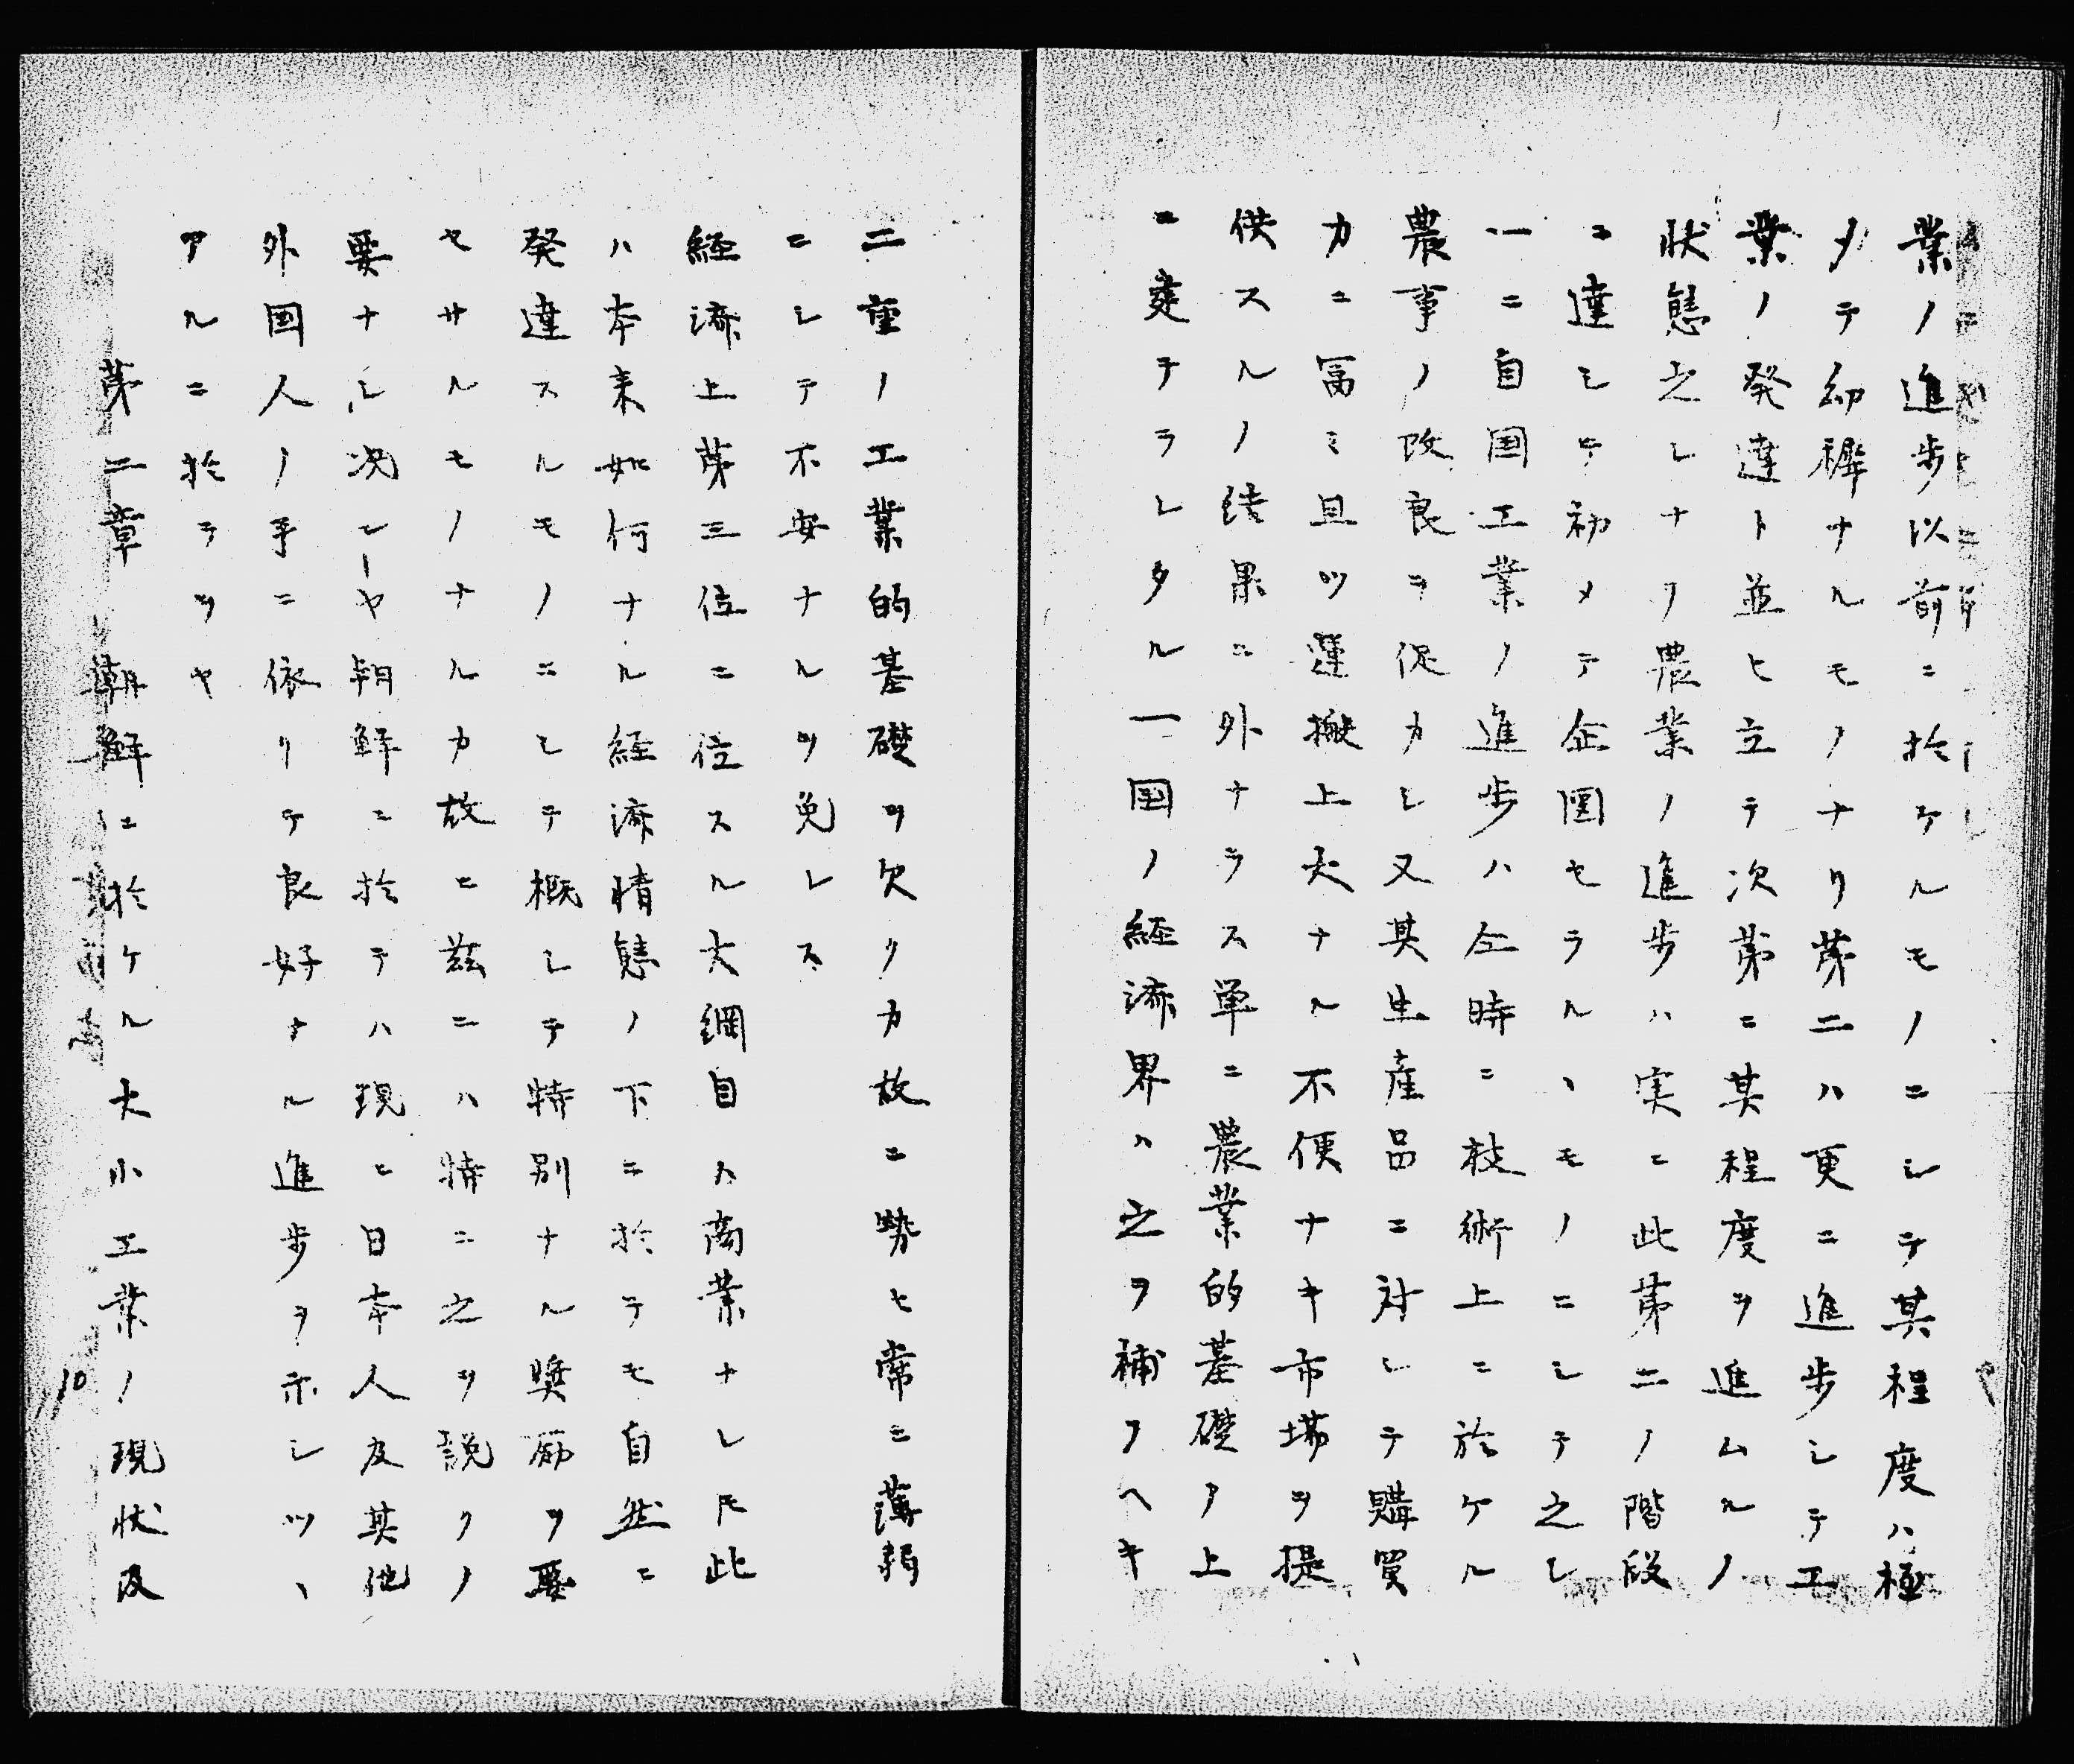 業ノ進歩以前ニ於ケルモノニシテ其程度ハ極
メテ幼穉ナルモノナリ第二ハ更ニ進歩シテ工
業ノ発達ト並ヒ立テ次第ニ其程度ヲ進ムルノ
状態之レナリ農業ノ進歩ハ実ニ此第二ノ階段
ニ達シテ初メテ企図セラルヽモノニシテ之レ
一ニ自国工業ノ進歩ハ仝時ニ技術上ニ於ケル
農事ノ改良ヲ促カシ又其生産品ニ対シテ購買
力ニ冨ミ且ツ運搬上大ナル不便ナキ市場ヲ提
供スルノ結果ニ外ナラス単ニ農業的基礎ノ上
ニ建テラレタル一国ノ経済界ハ之ヲ補フヘキ
二重ノ工業的基礎ヲ欠クカ故ニ勢ヒ常ニ薄弱
ニシテ不安ナルヲ免レス
経済上第三位ニ位スル大綱目ハ商業ナレトモ此
ハ本来如何ナル経済情態ノ下ニ於テモ自然ニ
発達スルモノニシテ概シテ特別ナル奨励ヲ要
セサルモノナルカ故ニ茲ニハ特ニ之ヲ説クノ
要ナシ况シーヤ朝鮮ニ於テハ現ニ日本人及其他
外国人ノ手ニ依リテ良好ナル進歩ヲ示シツヽ
アルニ於テヲヤ
第二章　朝鮮ニ於ケル大小工業ノ現状及
10